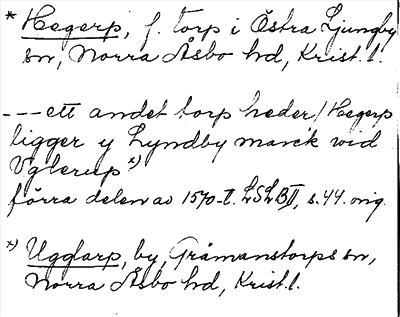 * Hegerp, f. torp i Östra Ljungby
sn, Norra Åsbo hd, Krist. l.
--- ett andet torp heder / Hegerp
ligger y Lyndby marck vid
Vglerup x)
förra delen av 1570-t. LSLB II, s. 44. orig.
x) Ugglarp, by, Gråmanstorps sn,
Norra Åsbo hd, Krist. l.